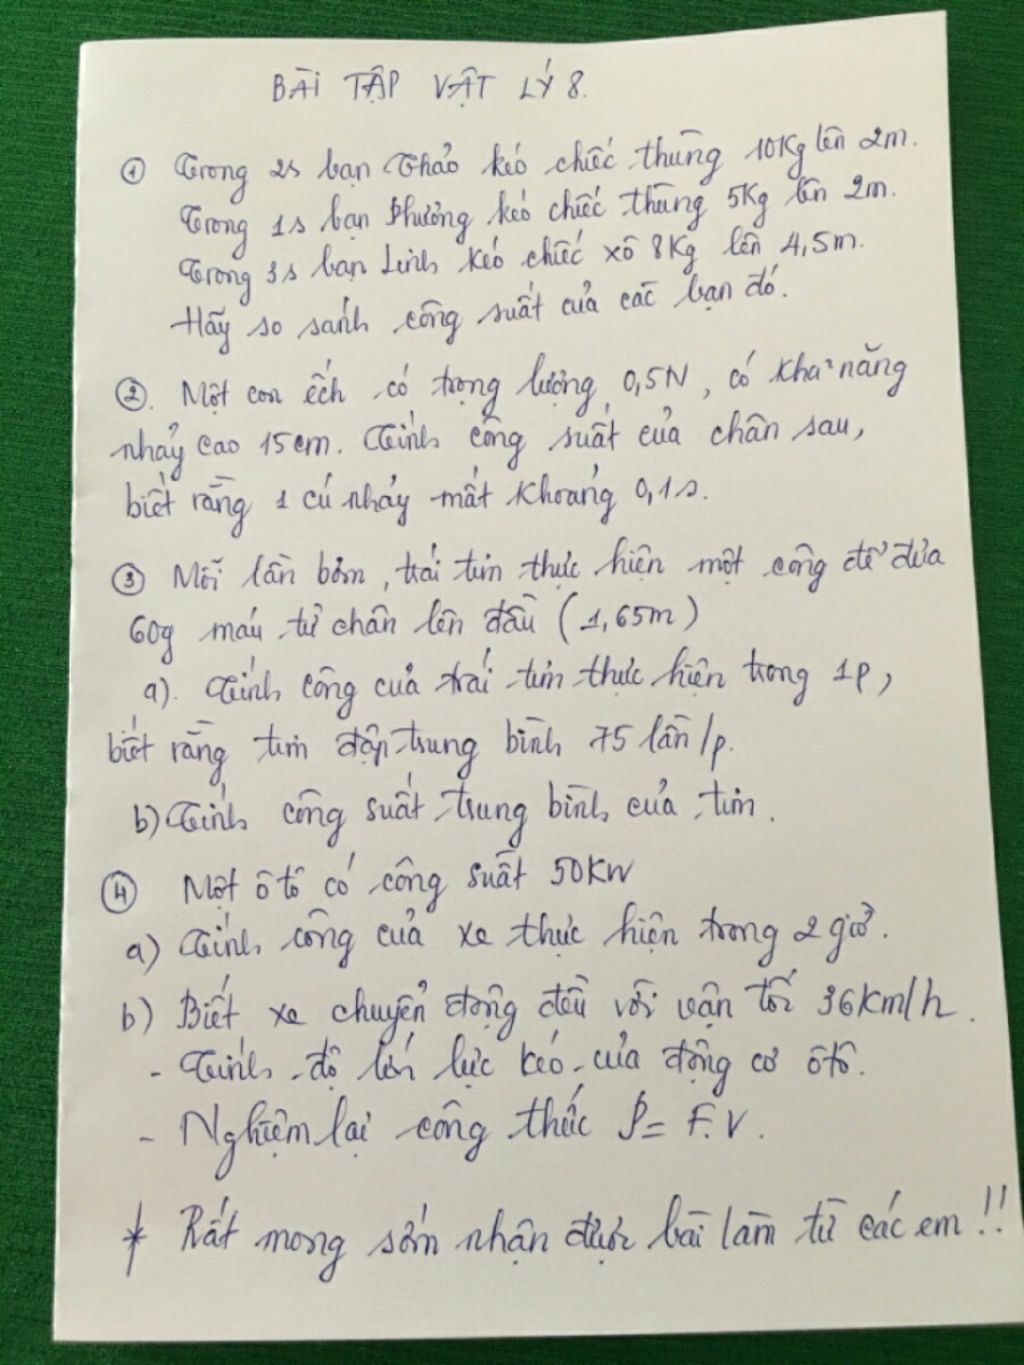 BÀI TẬP VẬT LÝ 8.
① Trong 2s bạn Thảo kéo chiếc thùng 10Kg lên 2m.
Trong 1s bạn Phương kéo chiếc thùng 5Kg lên 2m.
Trong 3s bạn Linh kéo chiếc xô 8Kg lên 4,5m.
Hãy so sánh công suất của các bạn đó.
②. Một con ếch có trọng lượng 0,5N, có khả năng
nhảy cao 15cm. Tính công suất của chân sau,
biết rằng 1 cú nhảy mất khoảng 0,1s.
③ Mỗi lần bơm, trái tim thực hiện một công để đưa
60g máu từ chân lên đầu (1,65m)
a). Tính công của trái tim thực hiện trong 1p,
biết rằng tim đập trung bình 75 lần/p.
b) Tính công suất trung bình của tim.
④ Một ô tô có công suất 50KW
a) Tính công của xe thực hiện trong 2 giờ.
b) Biết xe chuyển động đều với vận tốc 36Km/h.
- Tính độ lớn lực kéo của động cơ ôtô.
- Nghiệm lại công thức P = F.V.
* Rất mong sớm nhận được bài làm từ các em !!